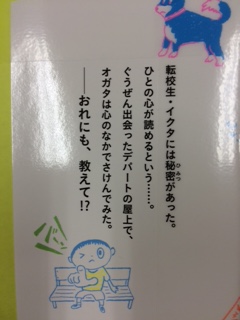 転校生・イクタには秘密があった。
ひとの心が読めるという……。
ぐうぜん出会ったデパートの屋上で、
オガタは心のなかでさけんでみた。
――おれにも、教えて!?